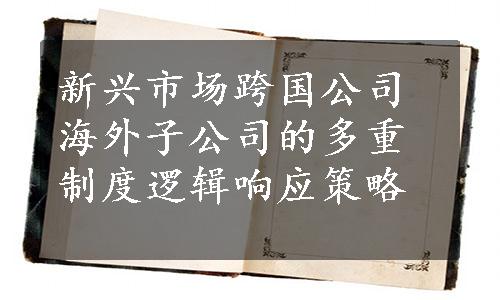 新兴市场跨国公司
海外子公司的多重
制度逻辑响应策略